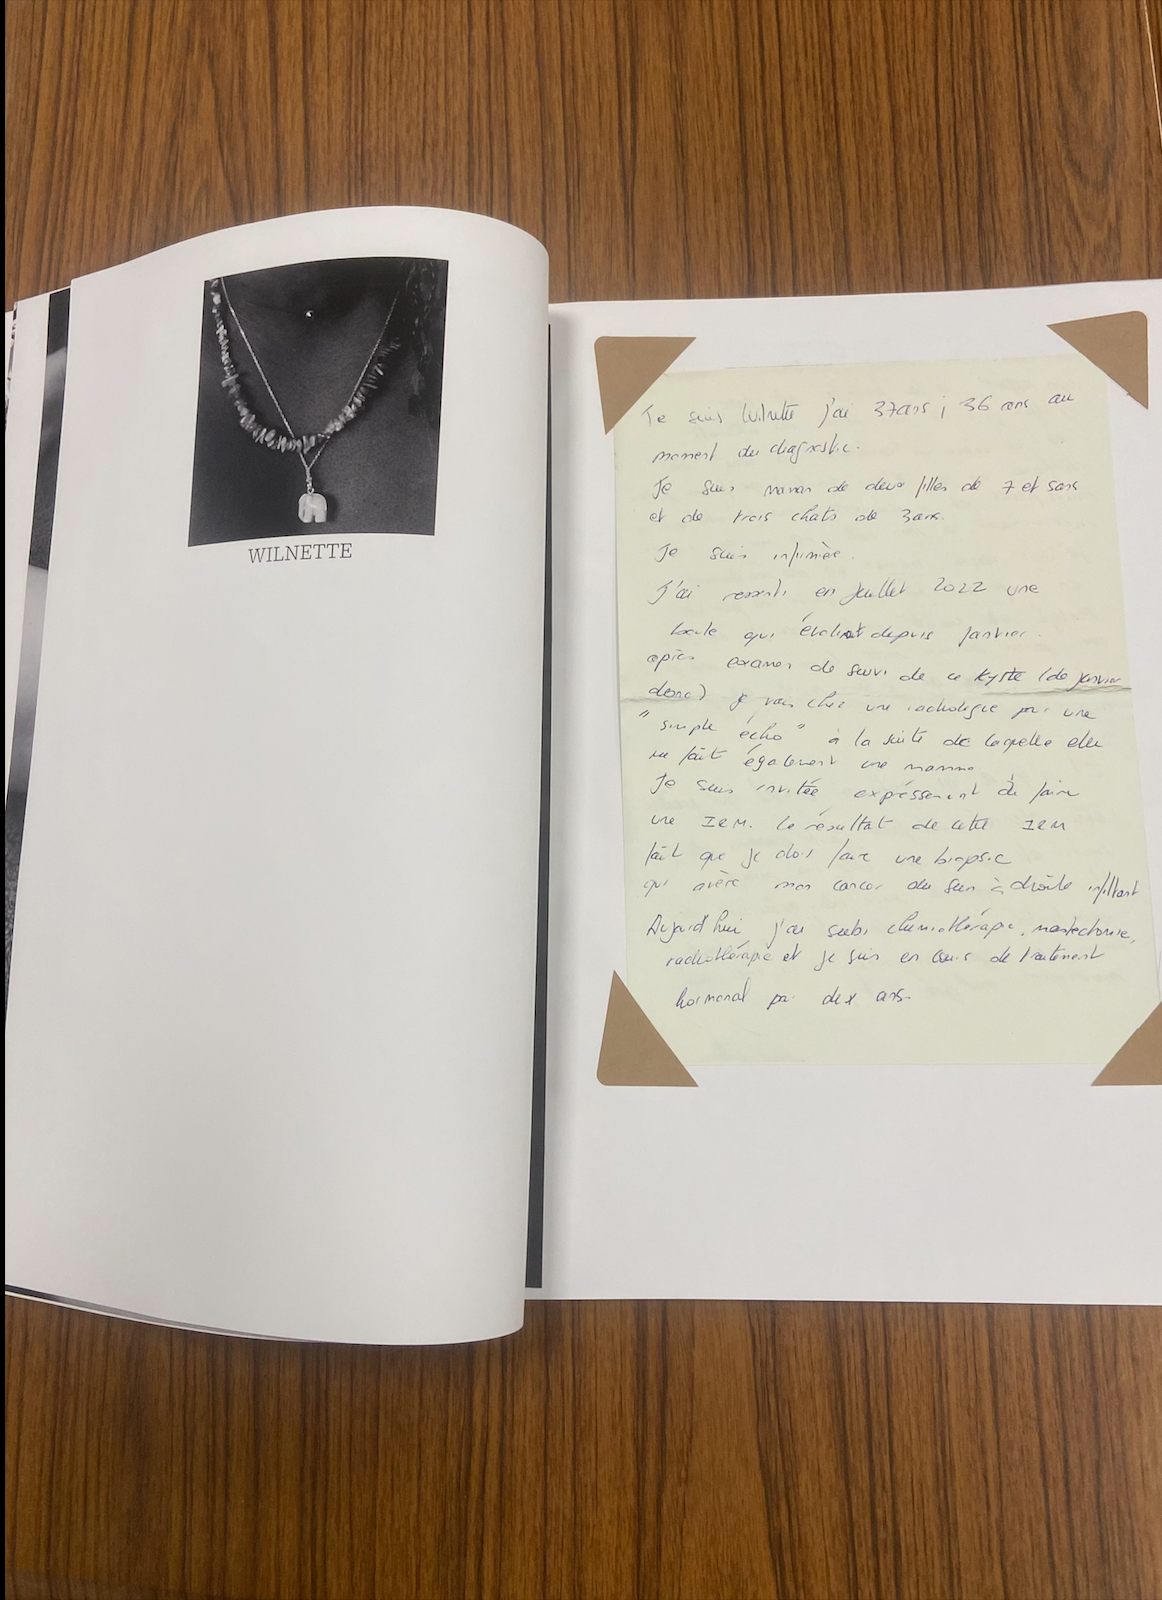 WILNETTE
Je suis Wilnette j'ai 37ans ; 36 ans au
moment du diagnostic.
Je suis maman de deux filles de 7 et 5ans
et de trois chats de 3ans.
Je suis infirmière.
J'ai ressenti en Juillet 2022 une
boule qui évoluait depuis Janvier.
après examen de suivi de ce kyste (de janvier
donc) je vais chez une radiologue pour une
"simple écho" à la suite de laquelle elle
me fait également une mammo
Je suis invitée expréssement à faire
une IRM. Le résultat de cette IRM
fait que je dois faire une biopsie
qui avère mon cancer du sein à droite infiltrant
Aujourd'hui j'ai subi chimiothérapie, mastectomie,
radiothérapie et je suis en cours de traitement
hormonal pour dix ans.